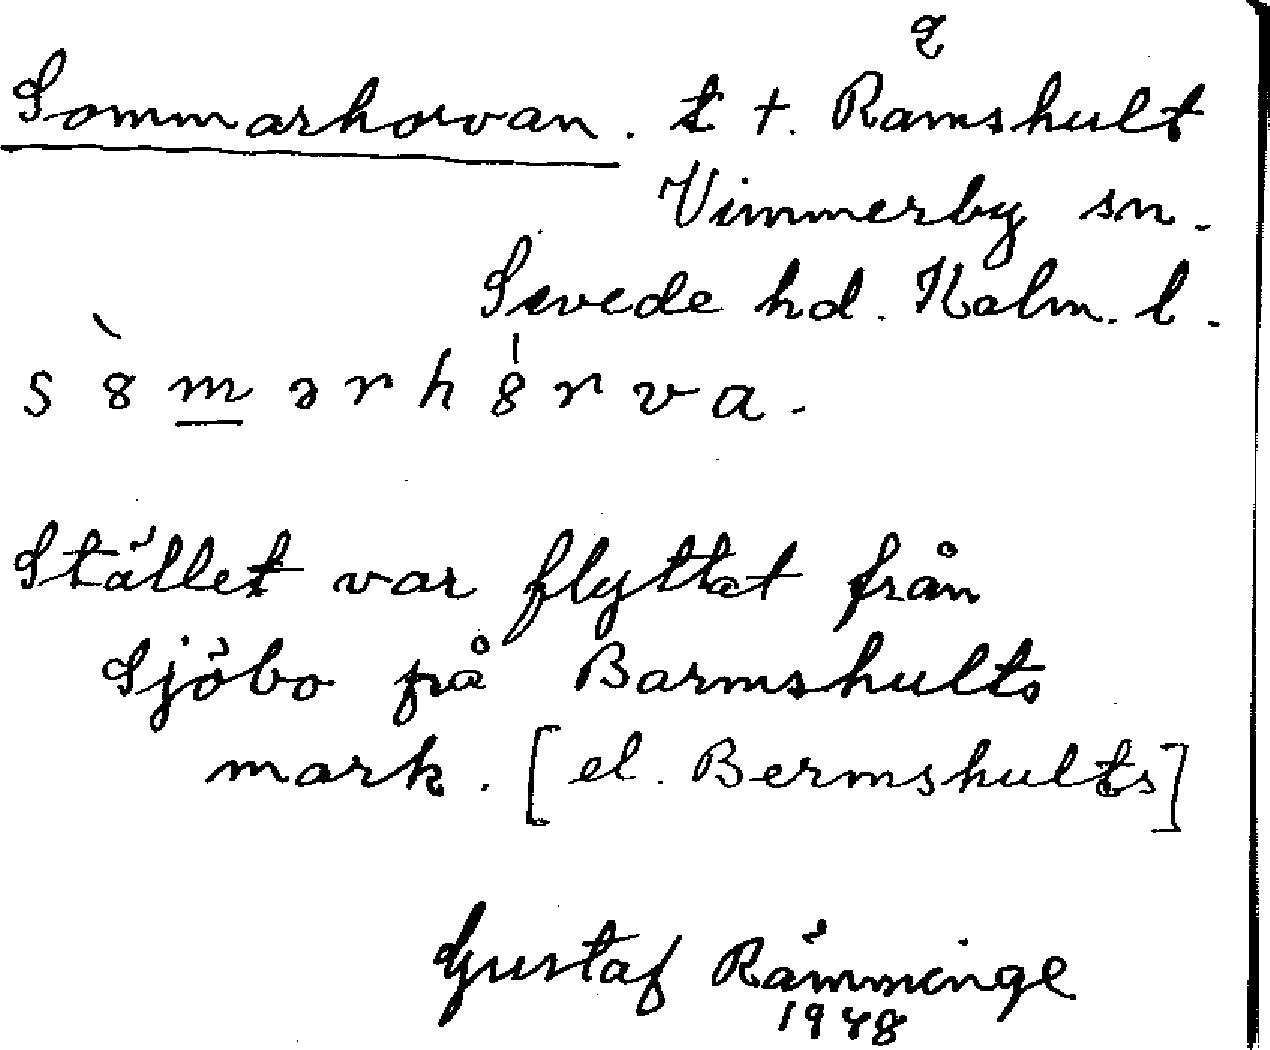 Sommarhorvan. t †. Ramshult
Vimmerby sn.
Sevede hd. Kalm. l.
s 8̀ m̲ ə r h 8̍ r v a.
Stället var flyttat från
Sjöbo på Barmshults
mark. [el. Bermshults]
Gustaf Rämminge
1948